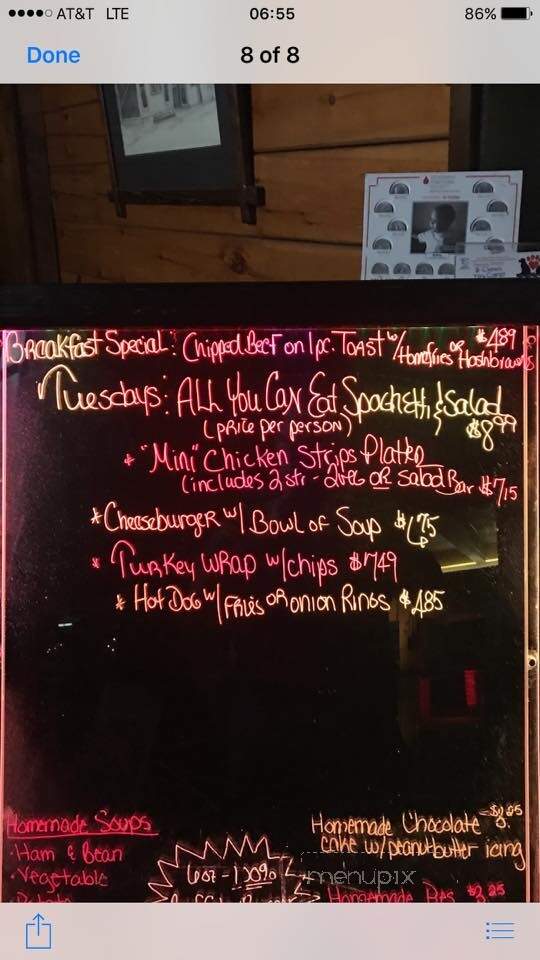 AT&T LTE 06:55 86%
Done 8 of 8
Breakfast Special: Chipped Beef on 1 pc. Toast w/ Homefries or Hashbrowns $4.89
Tuesdays: All You Can Eat Spaghetti & Salad
(price per person) $8.99
* "Mini" Chicken Strips Platter
(includes 2 str - or Salad Bar $7.15
* Cheeseburger w/ Bowl of Soup
* Turkey Wrap w/ chips $7.49
* Hot Dog w/ Fries or onion Rings $4.85
Homemade Soups
• Ham & Bean
• Vegetable
Homemade Chocolate
cake w/ peanutbutter icing
menupix
Homemade Pies